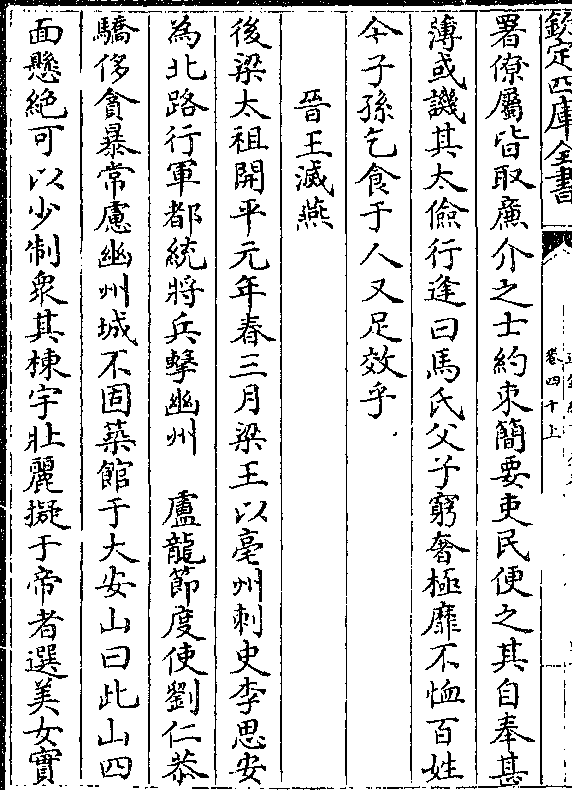 欽定四庫全書
卷四十上
署僚屬皆取廉介之士約束簡要吏民便之其自奉甚
薄或譏其太儉行逢曰馬氏父子窮奢極靡不恤百姓
今子孫乞食于人又足效乎
晉王滅燕
後梁太祖開平元年春三月梁王以亳州刺史李思安
為北路行軍都統將兵擊幽州　盧龍節度使劉仁恭
驕侈貪暴常慮幽州城不固築館于大安山曰此山四
面懸絶可以少制衆其棟宇壯麗擬于帝者選美女實